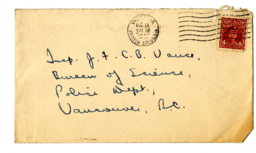 Insp. J. F. C. B. Vance,
Bureau of Science,
Police Dept.,
Vancouver, B.C.